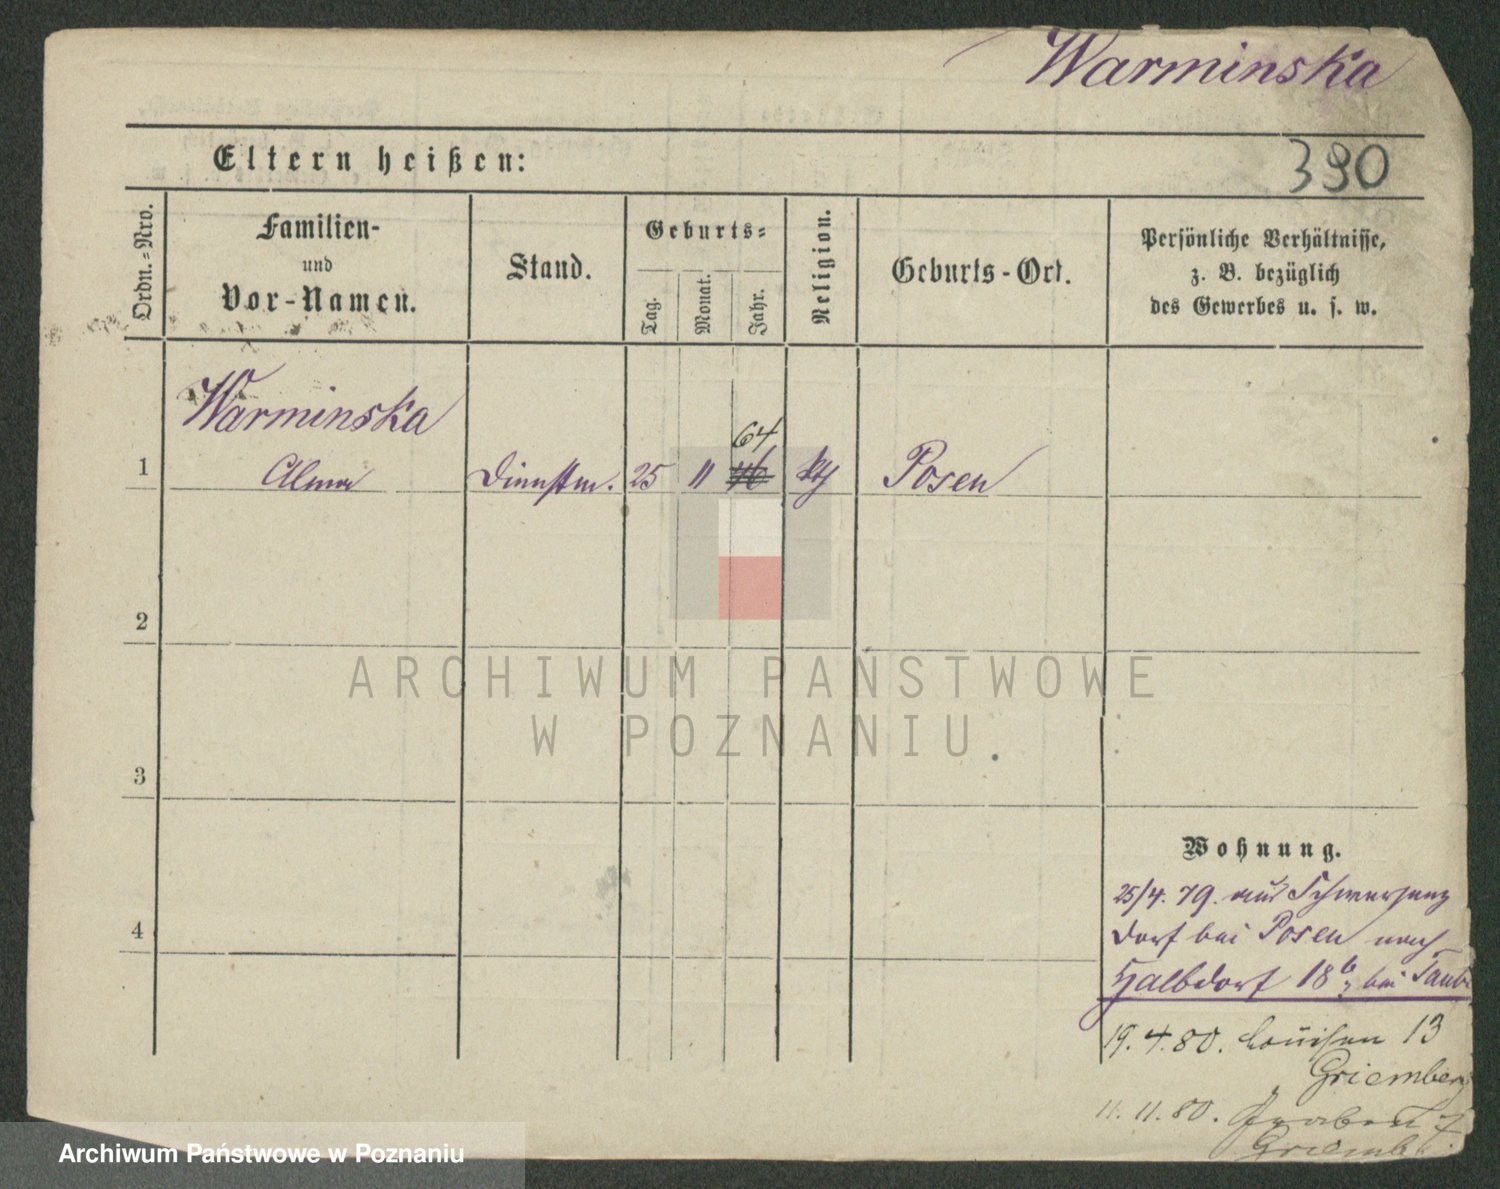 Warminska
Eltern heißen:
390
Ordn.-Nro.
Familien-
und
Vor-Namen.
Stand.
Geburts-
Tag.
Monat.
Jahr.
Religion.
Geburts-Ort.
Persönliche Verhältnisse,
z. B. bezüglich
des Gewerbes u. s. w.
Warminska
64
1 Alma Dienstm. 25 11 kth Posen
2
ARCHIWUM PAŃSTWOWE
W POZNANIU
3
Wohnung.
25/4. 79. aus Schwersenz
4
Dorf bei Posen nach
Halbdorf 18b, bei Taube
19.4.80. Louisen 13
Griemberg
11.11.80. Graben 7
Griemb
Archiwum Państwowe w Poznaniu